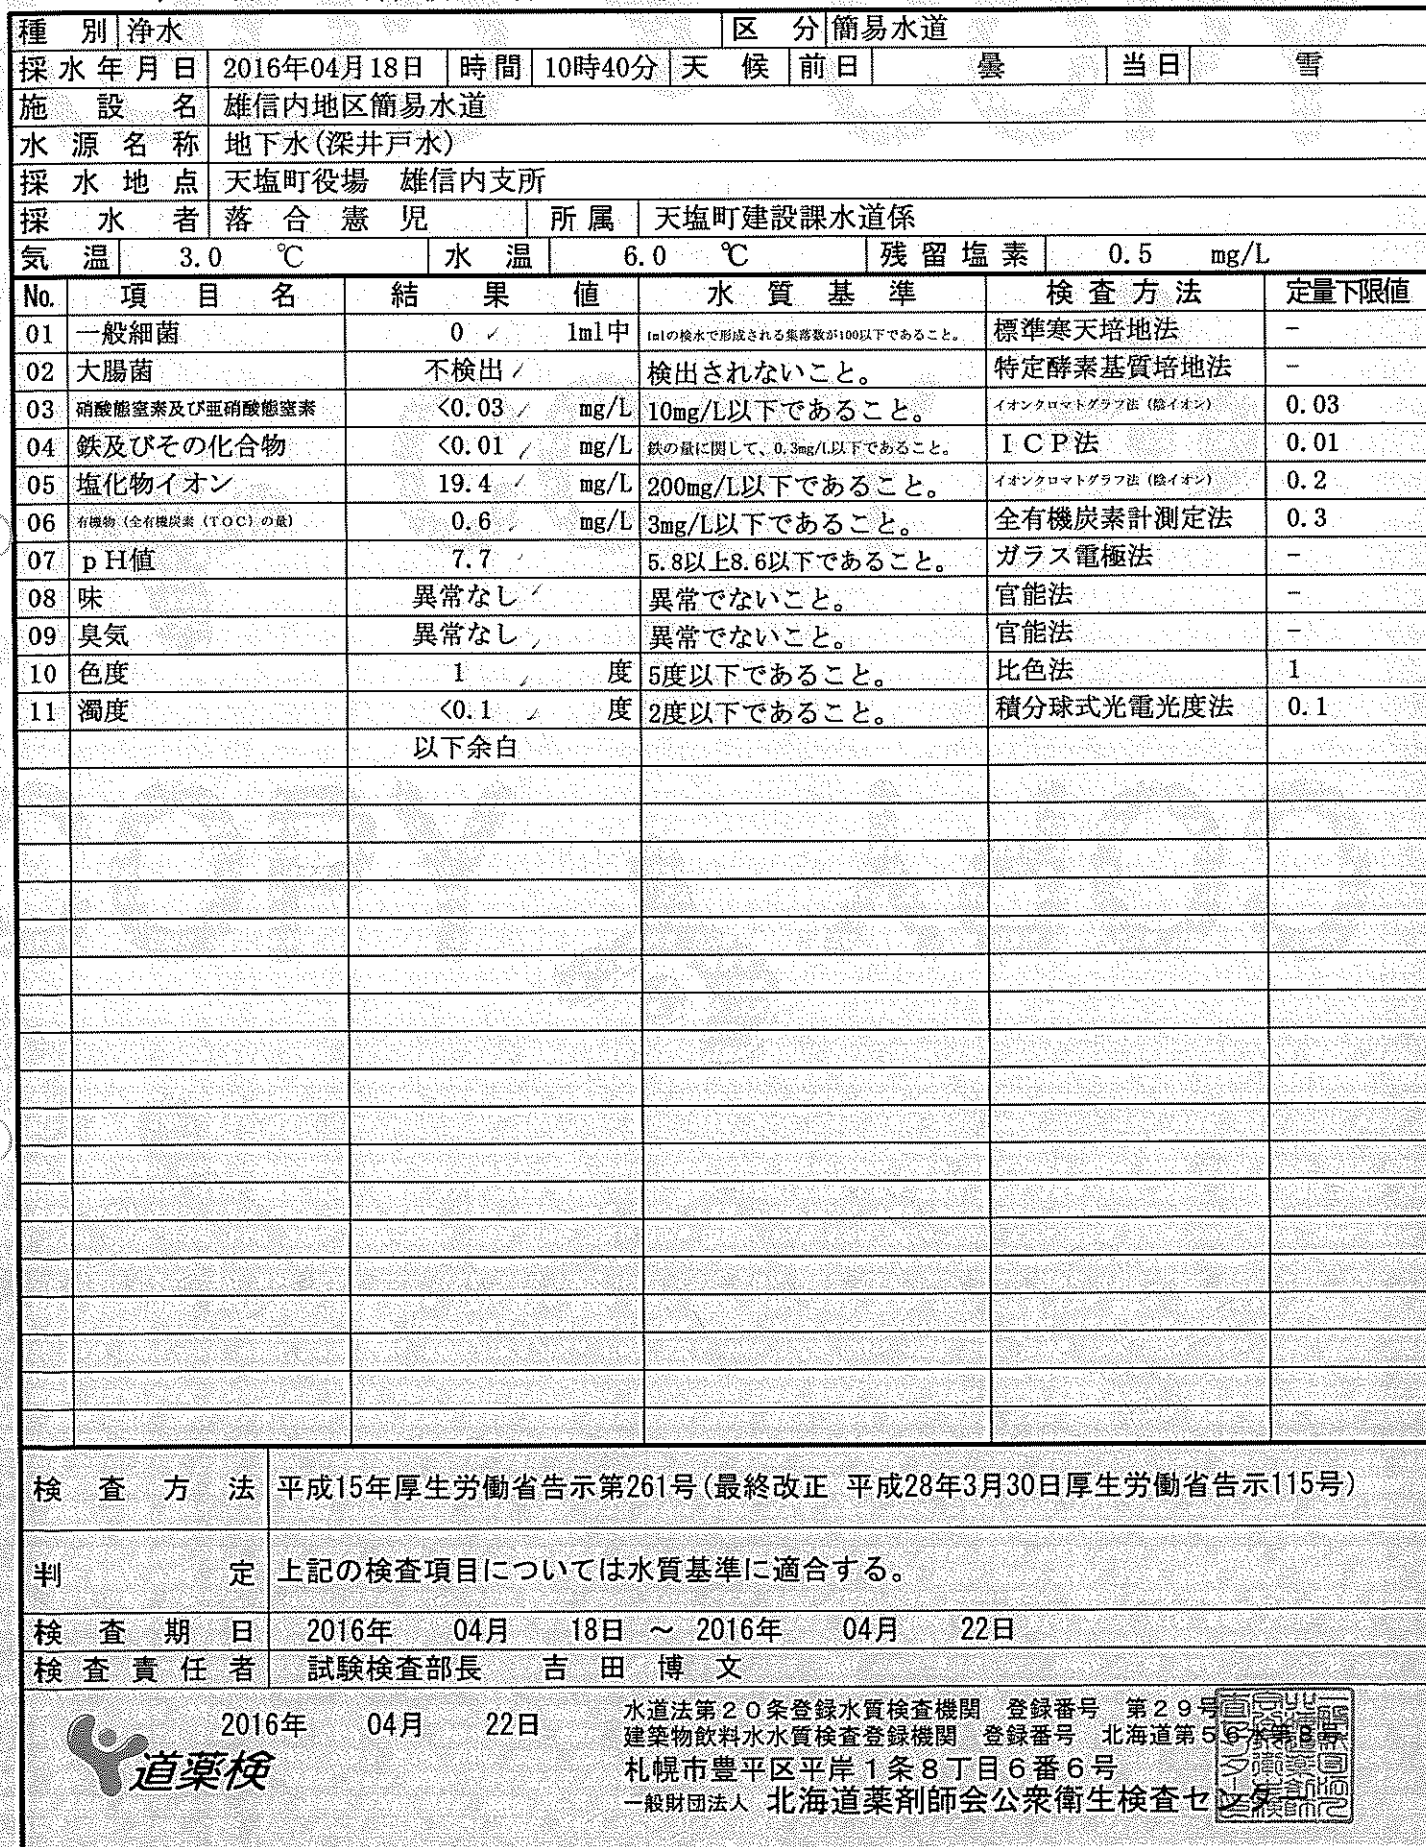 種 別 浄水 区 分 簡易水道
採水年月日 2016年04月18日 時間 10時40分 天 候 前日 曇 当日 雪
施 設 名 雄信内地区簡易水道
水 源 名 称 地下水(深井戸水)
採 水 地 点 天塩町役場 雄信内支所
採 水 者 落 合 憲 児 所属 天塩町建設課水道係
気 温 3.0 ℃ 水 温 6.0 ℃ 残留塩素 0.5 mg/L
No. 項 目 名 結 果 値 水 質 基 準 検査方法 定量下限値
01 一般細菌 0 1ml中 1mlの検水で形成される集落数が100以下であること。 標準寒天培地法 -
02 大腸菌 不検出 検出されないこと。 特定酵素基質培地法 -
03 硝酸態窒素及び亜硝酸態窒素 <0.03 mg/L 10mg/L以下であること。 イオンクロマトグラフ法(陰イオン) 0.03
04 鉄及びその化合物 <0.01 mg/L 鉄の量に関して、0.3mg/L以下であること。 ICP法 0.01
05 塩化物イオン 19.4 mg/L 200mg/L以下であること。 イオンクロマトグラフ法(陰イオン) 0.2
06 有機物(全有機炭素(TOC)の量) 0.6 mg/L 3mg/L以下であること。 全有機炭素計測定法 0.3
07 pH値 7.7 5.8以上8.6以下であること。 ガラス電極法 -
08 味 異常なし 異常でないこと。 官能法 -
09 臭気 異常なし 異常でないこと。 官能法 -
10 色度 1 度 5度以下であること。 比色法 1
11 濁度 <0.1 度 2度以下であること。 積分球式光電光度法 0.1
以下余白
検 査 方 法 平成15年厚生労働省告示第261号(最終改正 平成28年3月30日厚生労働省告示115号)
判 定 上記の検査項目については水質基準に適合する。
検 査 期 日 2016年 04月 18日 ～ 2016年 04月 22日
検 査 責 任 者 試験検査部長 吉 田 博 文
2016年 04月 22日
道薬検
水道法第20条登録水質検査機関 登録番号 第29号
建築物飲料水水質検査登録機関 登録番号 北海道第56水第8号
札幌市豊平区平岸1条8丁目6番6号
一般財団法人 北海道薬剤師会公衆衛生検査センター